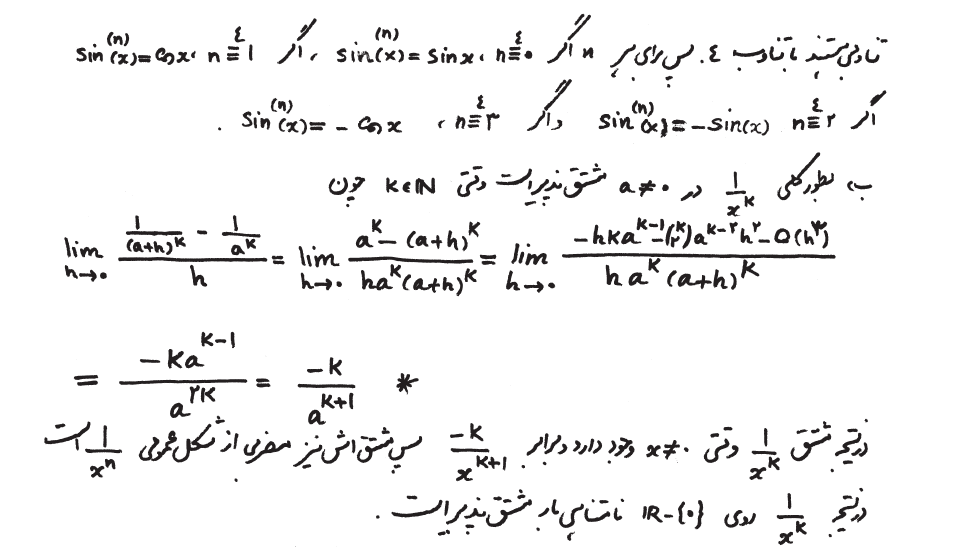 تناوبی هستند با تناوب ٤. پس برای هر n اگر n ≡⁴ ۰، sin⁽ⁿ⁾(x) = sin x، اگر n ≡⁴ ۱، sin⁽ⁿ⁾(x) = cos x
اگر n ≡⁴ ۲ sin⁽ⁿ⁾(x) = -sin(x) و اگر n ≡⁴ ۳، sin⁽ⁿ⁾(x) = -cos x.
ب، بطور کلی 1/x^k در a ≠ ۰ مشتق پذیر است وقتی k∈ℕ چون
lim_{h→۰} (1/(a+h)^k - 1/a^k)/h = lim_{h→۰} (a^k - (a+h)^k)/(h a^k (a+h)^k) = lim_{h→۰} (-hka^{k-1} - (k ۲) a^{k-۲} h^۲ - O(h^۳))/(h a^k (a+h)^k)
= (-ka^{k-1})/(a^{۲k}) = (-k)/(a^{k+1}) *
در نتیجه مشتق 1/x^k وقتی x ≠ ۰ وجود دارد و برابر -k/x^{k+1} پس مشتق اش نیز مضربی از شکل عمومی 1/x^n است
در نتیجه 1/x^k روی ℝ-{۰} نامتناهی بار مشتق پذیر است.